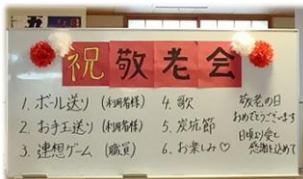 祝敬老会
1. ボール送り (利用者様)
2. お手玉送り (利用者様)
3. 連想ゲーム (職員)
4. 歌
5. 炭坑節
6. お楽しみ♡
敬老の日
おめでとうございます
日頃より愛と
感謝を込めて